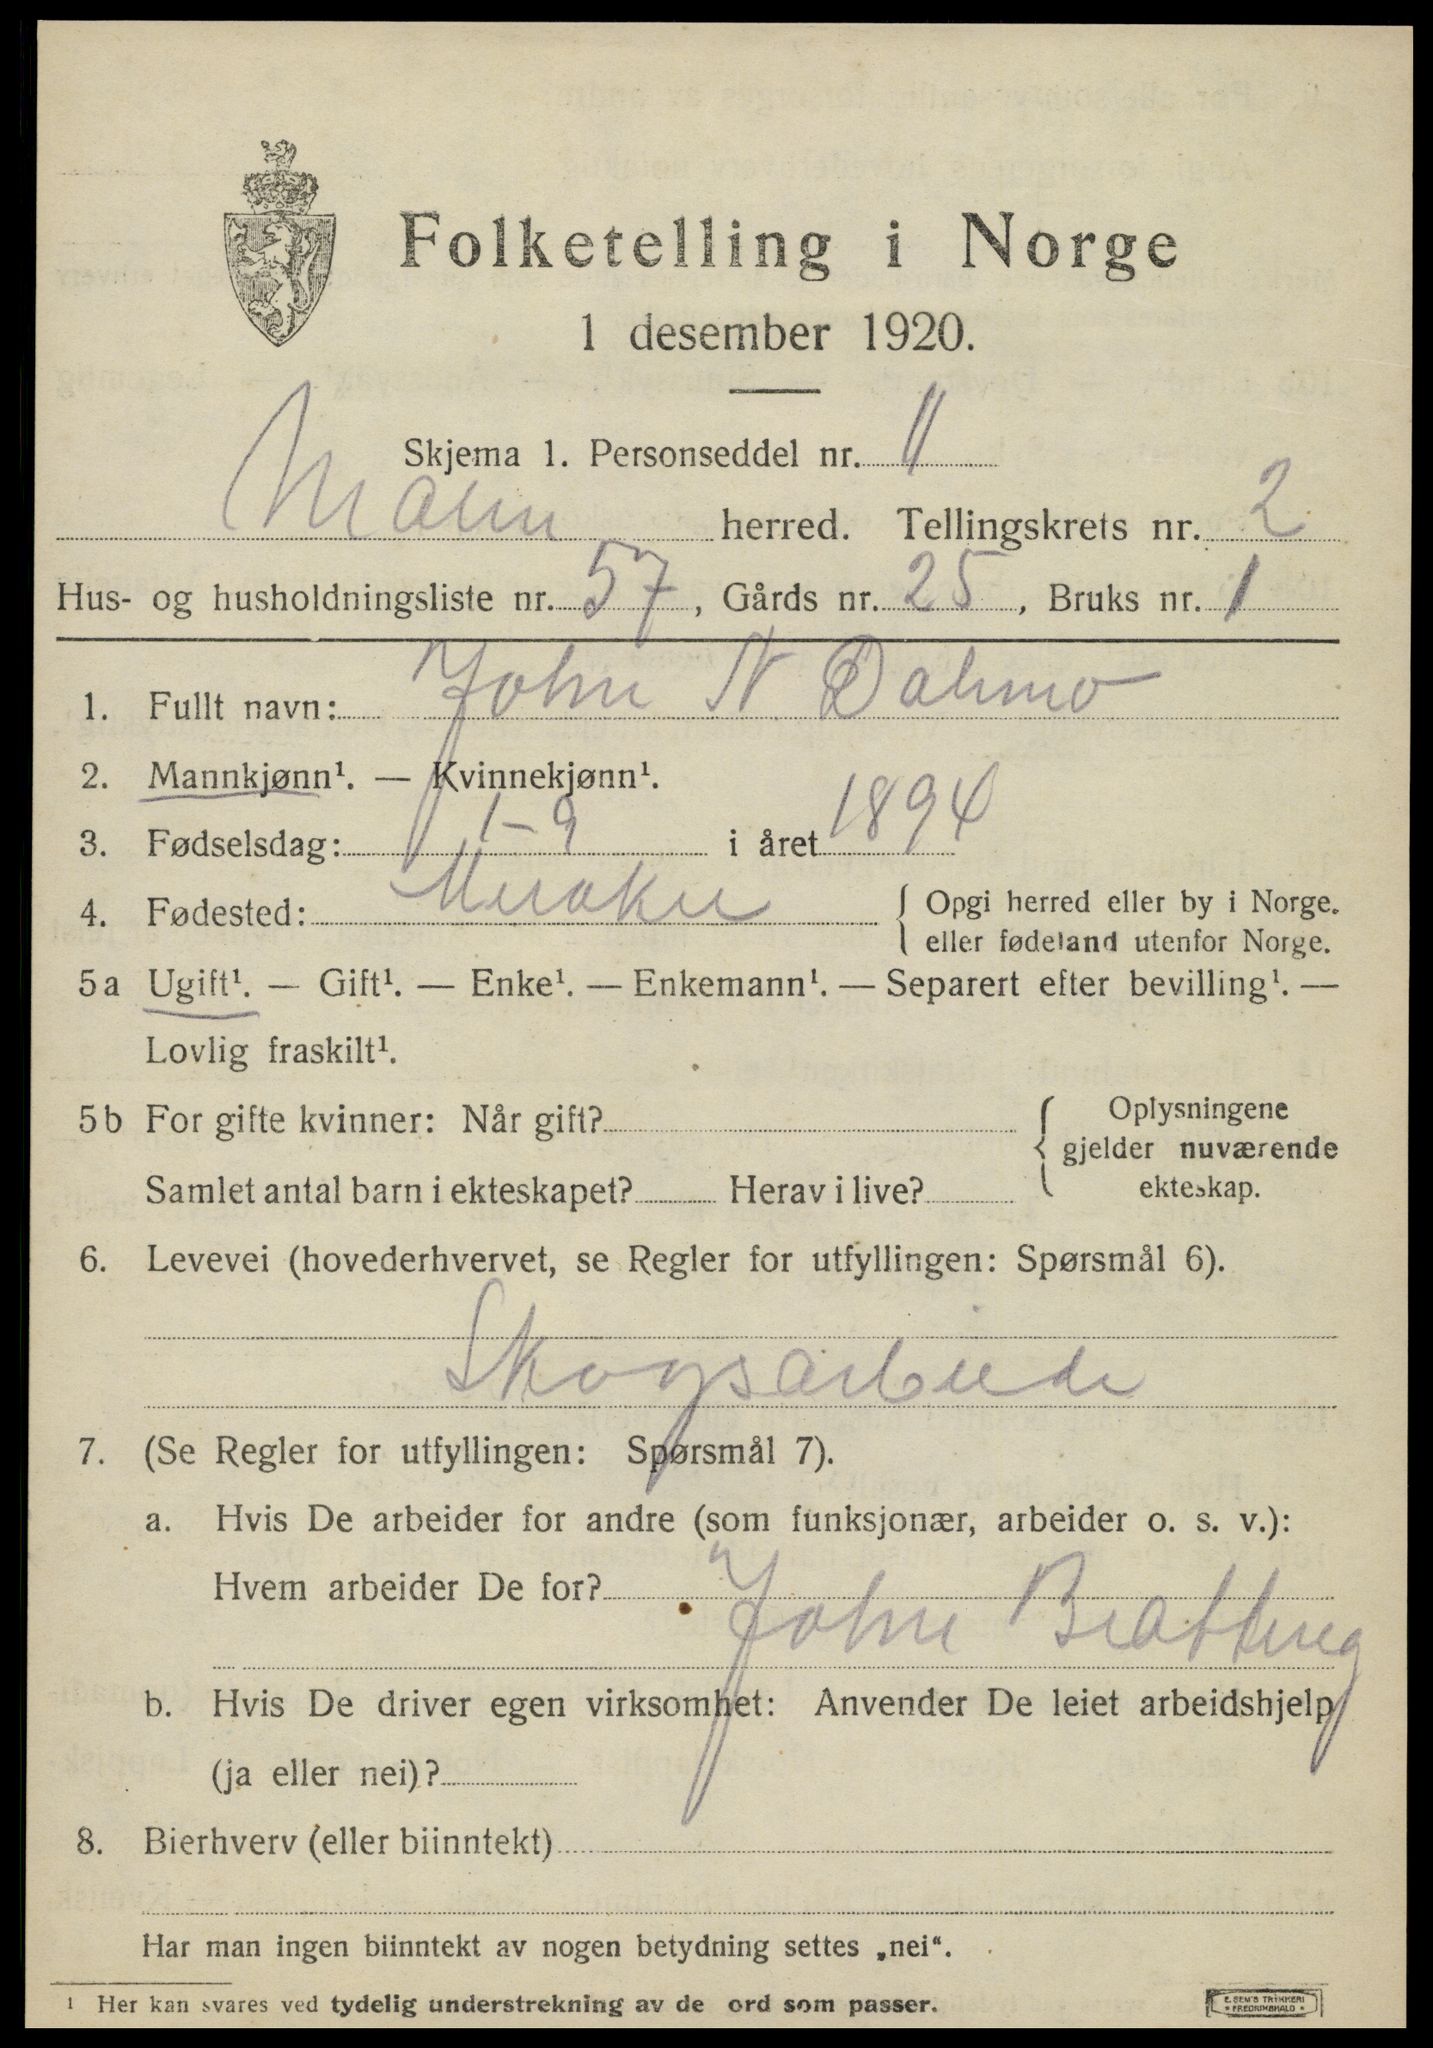 Folketelling i Norge
1 desember 1920.
Skjema 1. Personseddel nr. 11
Malm herred. Tellingskrets nr. 2
Hus- og husholdningsliste nr. 57, Gårds nr. 25, Bruks nr. 1
1. Fullt navn: John N. Dalmo
2. Mannkjønn¹. — Kvinnekjønn¹.
3. Fødselsdag: 1-9 i året 1894
4. Fødested: Meraker { Opgi herred eller by i Norge.
eller fødeland utenfor Norge.
5a Ugift¹. — Gift¹. — Enke¹. — Enkemann¹. — Separert efter bevilling¹. —
Lovlig fraskilt¹.
5b For gifte kvinner: Når gift? { Oplysningene
gjelder nuværende
Samlet antal barn i ekteskapet? Herav i live? ekteskap.
6. Levevei (hovederhvervet, se Regler for utfyllingen: Spørsmål 6).
Skogsarbeide
7. (Se Regler for utfyllingen: Spørsmål 7).
a. Hvis De arbeider for andre (som funksjonær, arbeider o. s. v.):
Hvem arbeider De for? John Bratberg
b. Hvis De driver egen virksomhet: Anvender De leiet arbeidshjelp
(ja eller nei)?
8. Bierhverv (eller biinntekt)
Har man ingen biinntekt av nogen betydning settes „nei“.
¹ Her kan svares ved tydelig understrekning av de ord som passer.
E. SEM'S TRYKKERI
* FREDRIKSHALD *